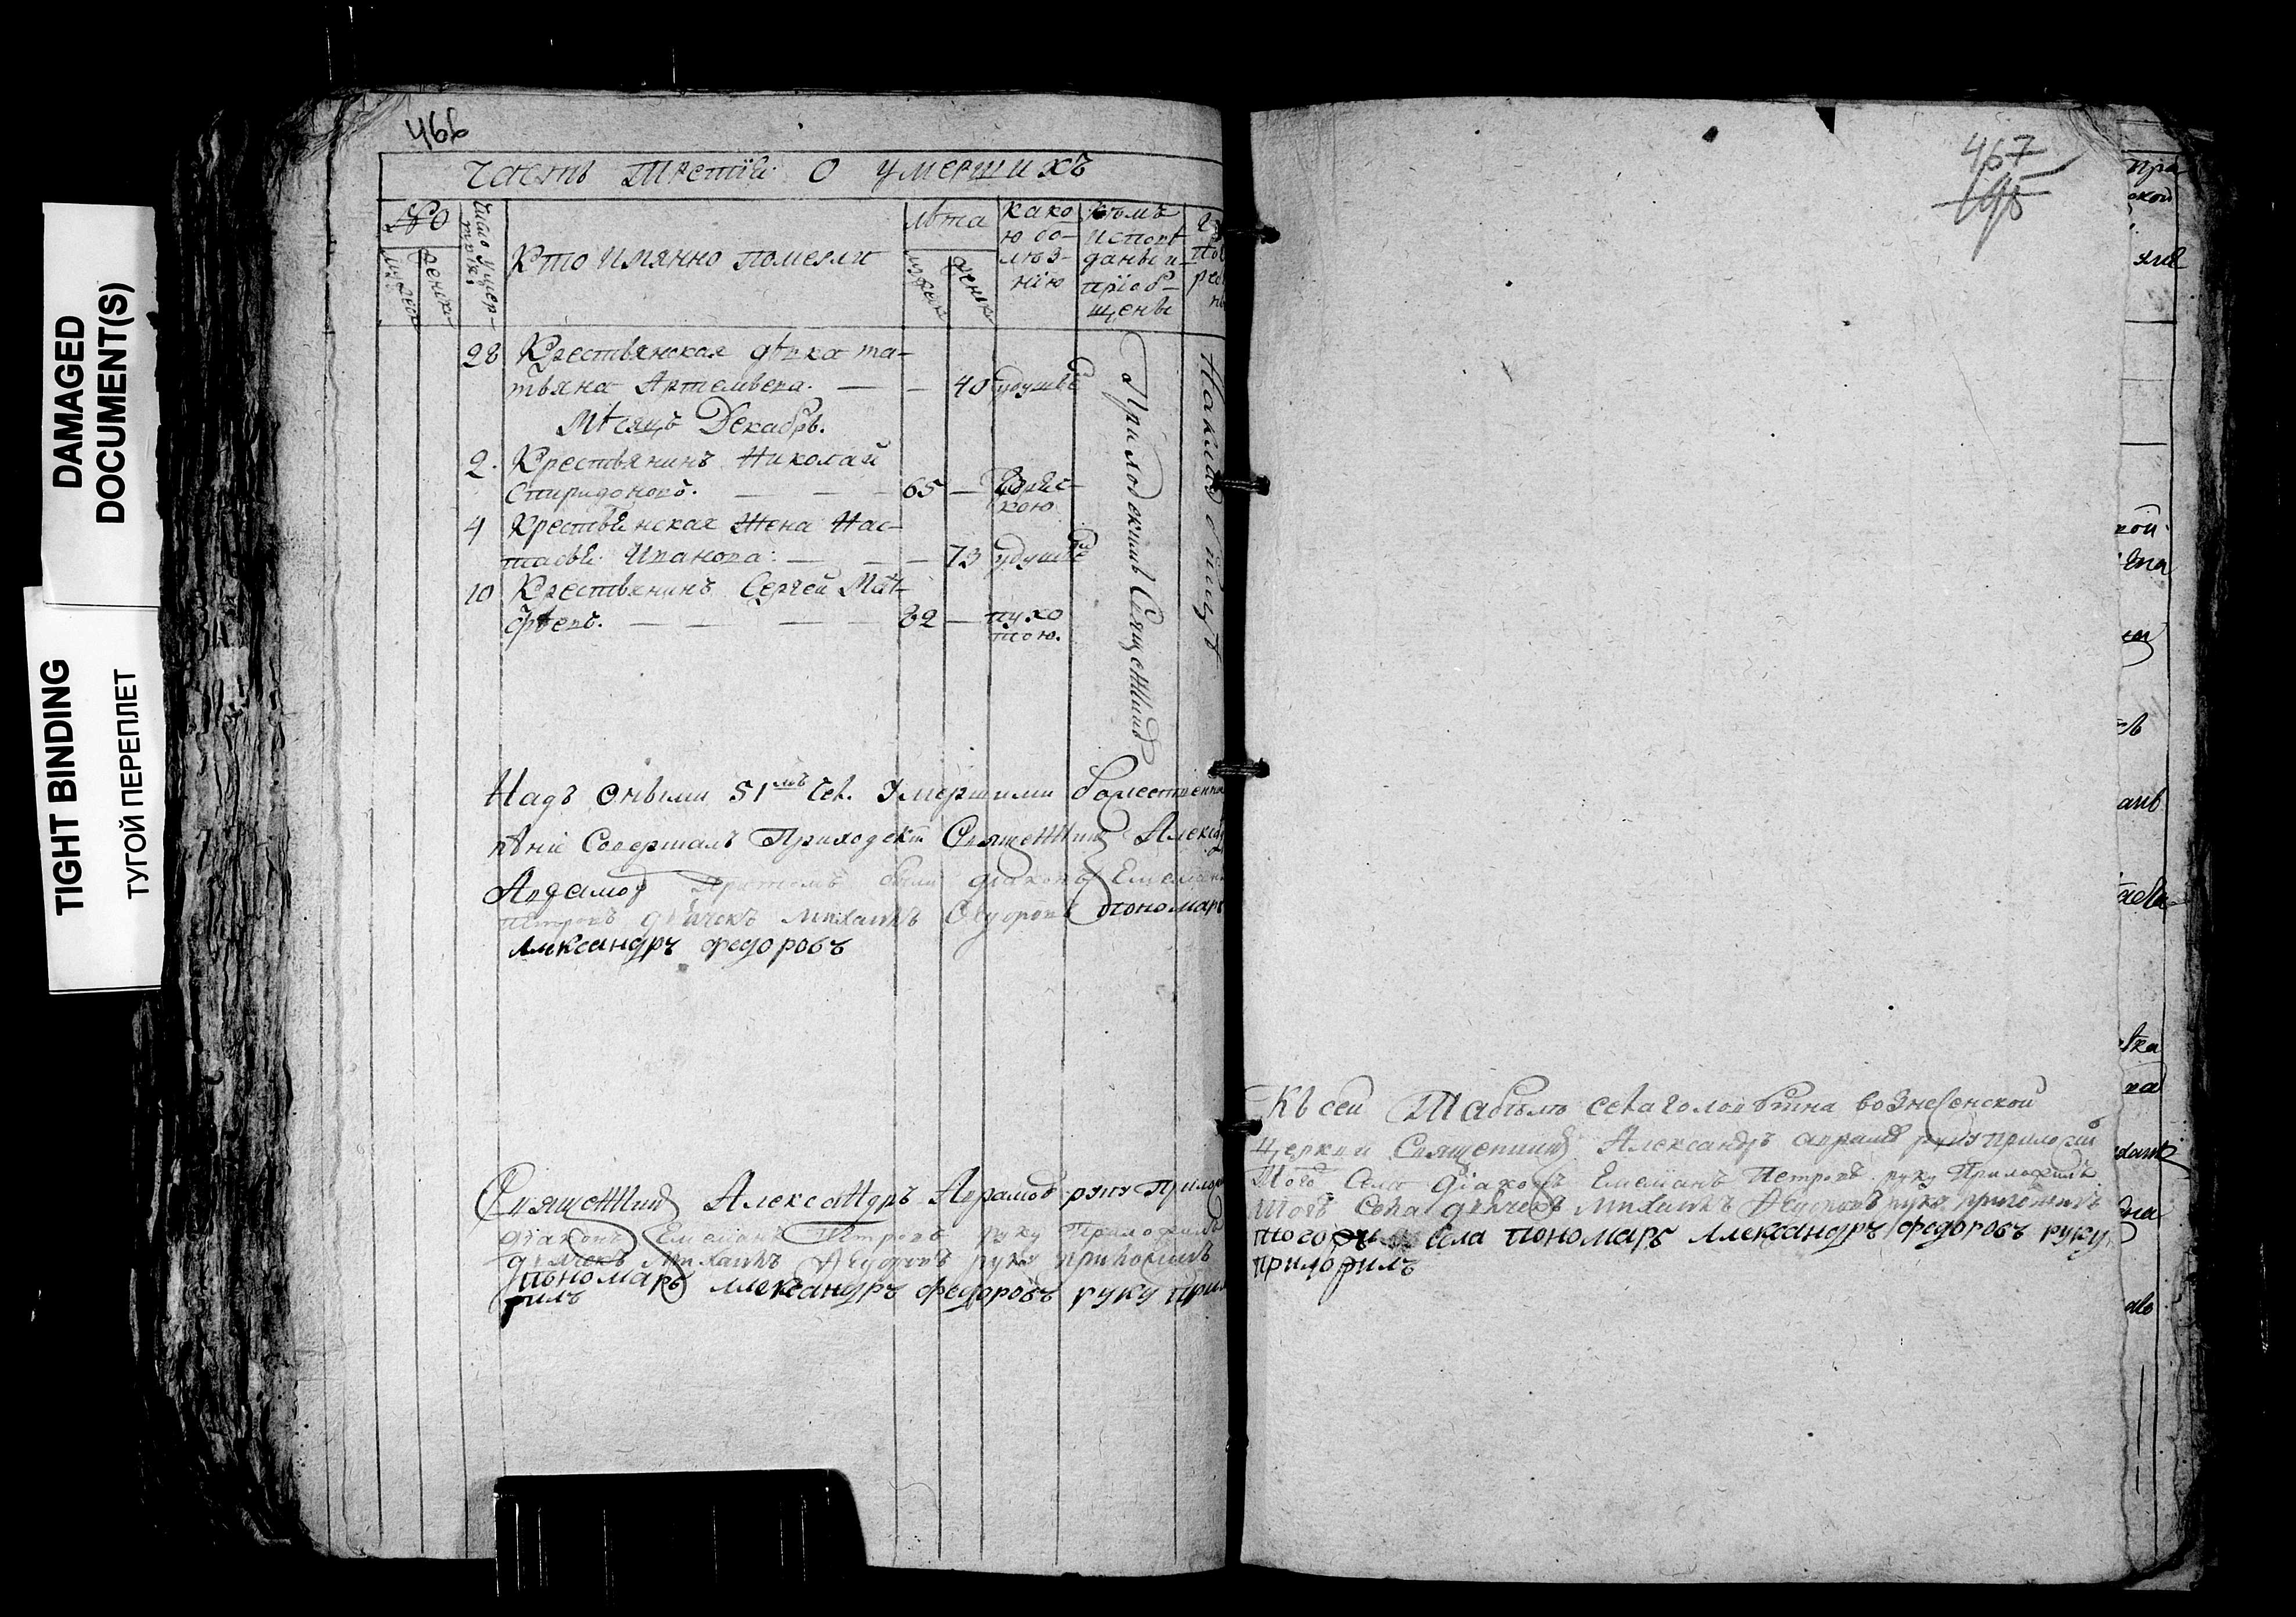 DAMAGED
DOCUMENT(S)
TIGHT BINDING
ТУГОЙ ПЕРЕПЛЕТ
466
Часть третія О умершихъ
№
Число умер-
Кто имянно померли
лѣта
како
ю бо-
лѣз-
нію
кѣмъ
исповѣ
даны и
пріоб-
щены
28 Крестьянская дѣвка та-
тьяна Артемьева. — — 40 удушьем
Мѣсяцъ Декабрь.
2. Крестьянинъ Николай
Спиридоновъ. — — — 65 —
4 Крестьянская жена Нас-
тасья Иванова. — — — 73 удушьем
10 Крестьянинъ Сергей Мат-
фѣевъ. — — — — 32 — сухо
тою.
Приходскимъ Священник
На кладбищѣ
Надъ оными 51мъ чел. Умершими божествен
пѣніе Совершалъ Приходскій Священникъ Алекса
Аврамов притомъ были діаконъ Емелианъ
Петровъ дьячекъ Михаилъ Ѳедоровъ пономарь
Александръ федоровъ
Священникъ Александръ Аврамов руку Прило
діаконъ Емелианъ Петровъ руку Приложилъ
дьячекъ Михаилъ Ѳедоровъ руку приложилъ
пономарь Александръ федоровъ руку прил
жилъ
467
Къ сей Табѣли села Вознесенской
церкви Священникъ Александръ Аврамов руку приложил
Того села діаконъ Емелианъ Петровъ руку Приложилъ
того села дьячекъ Михаилъ Ѳедоровъ руку приложилъ
того села пономарь Александръ федоровъ руку
приложилъ